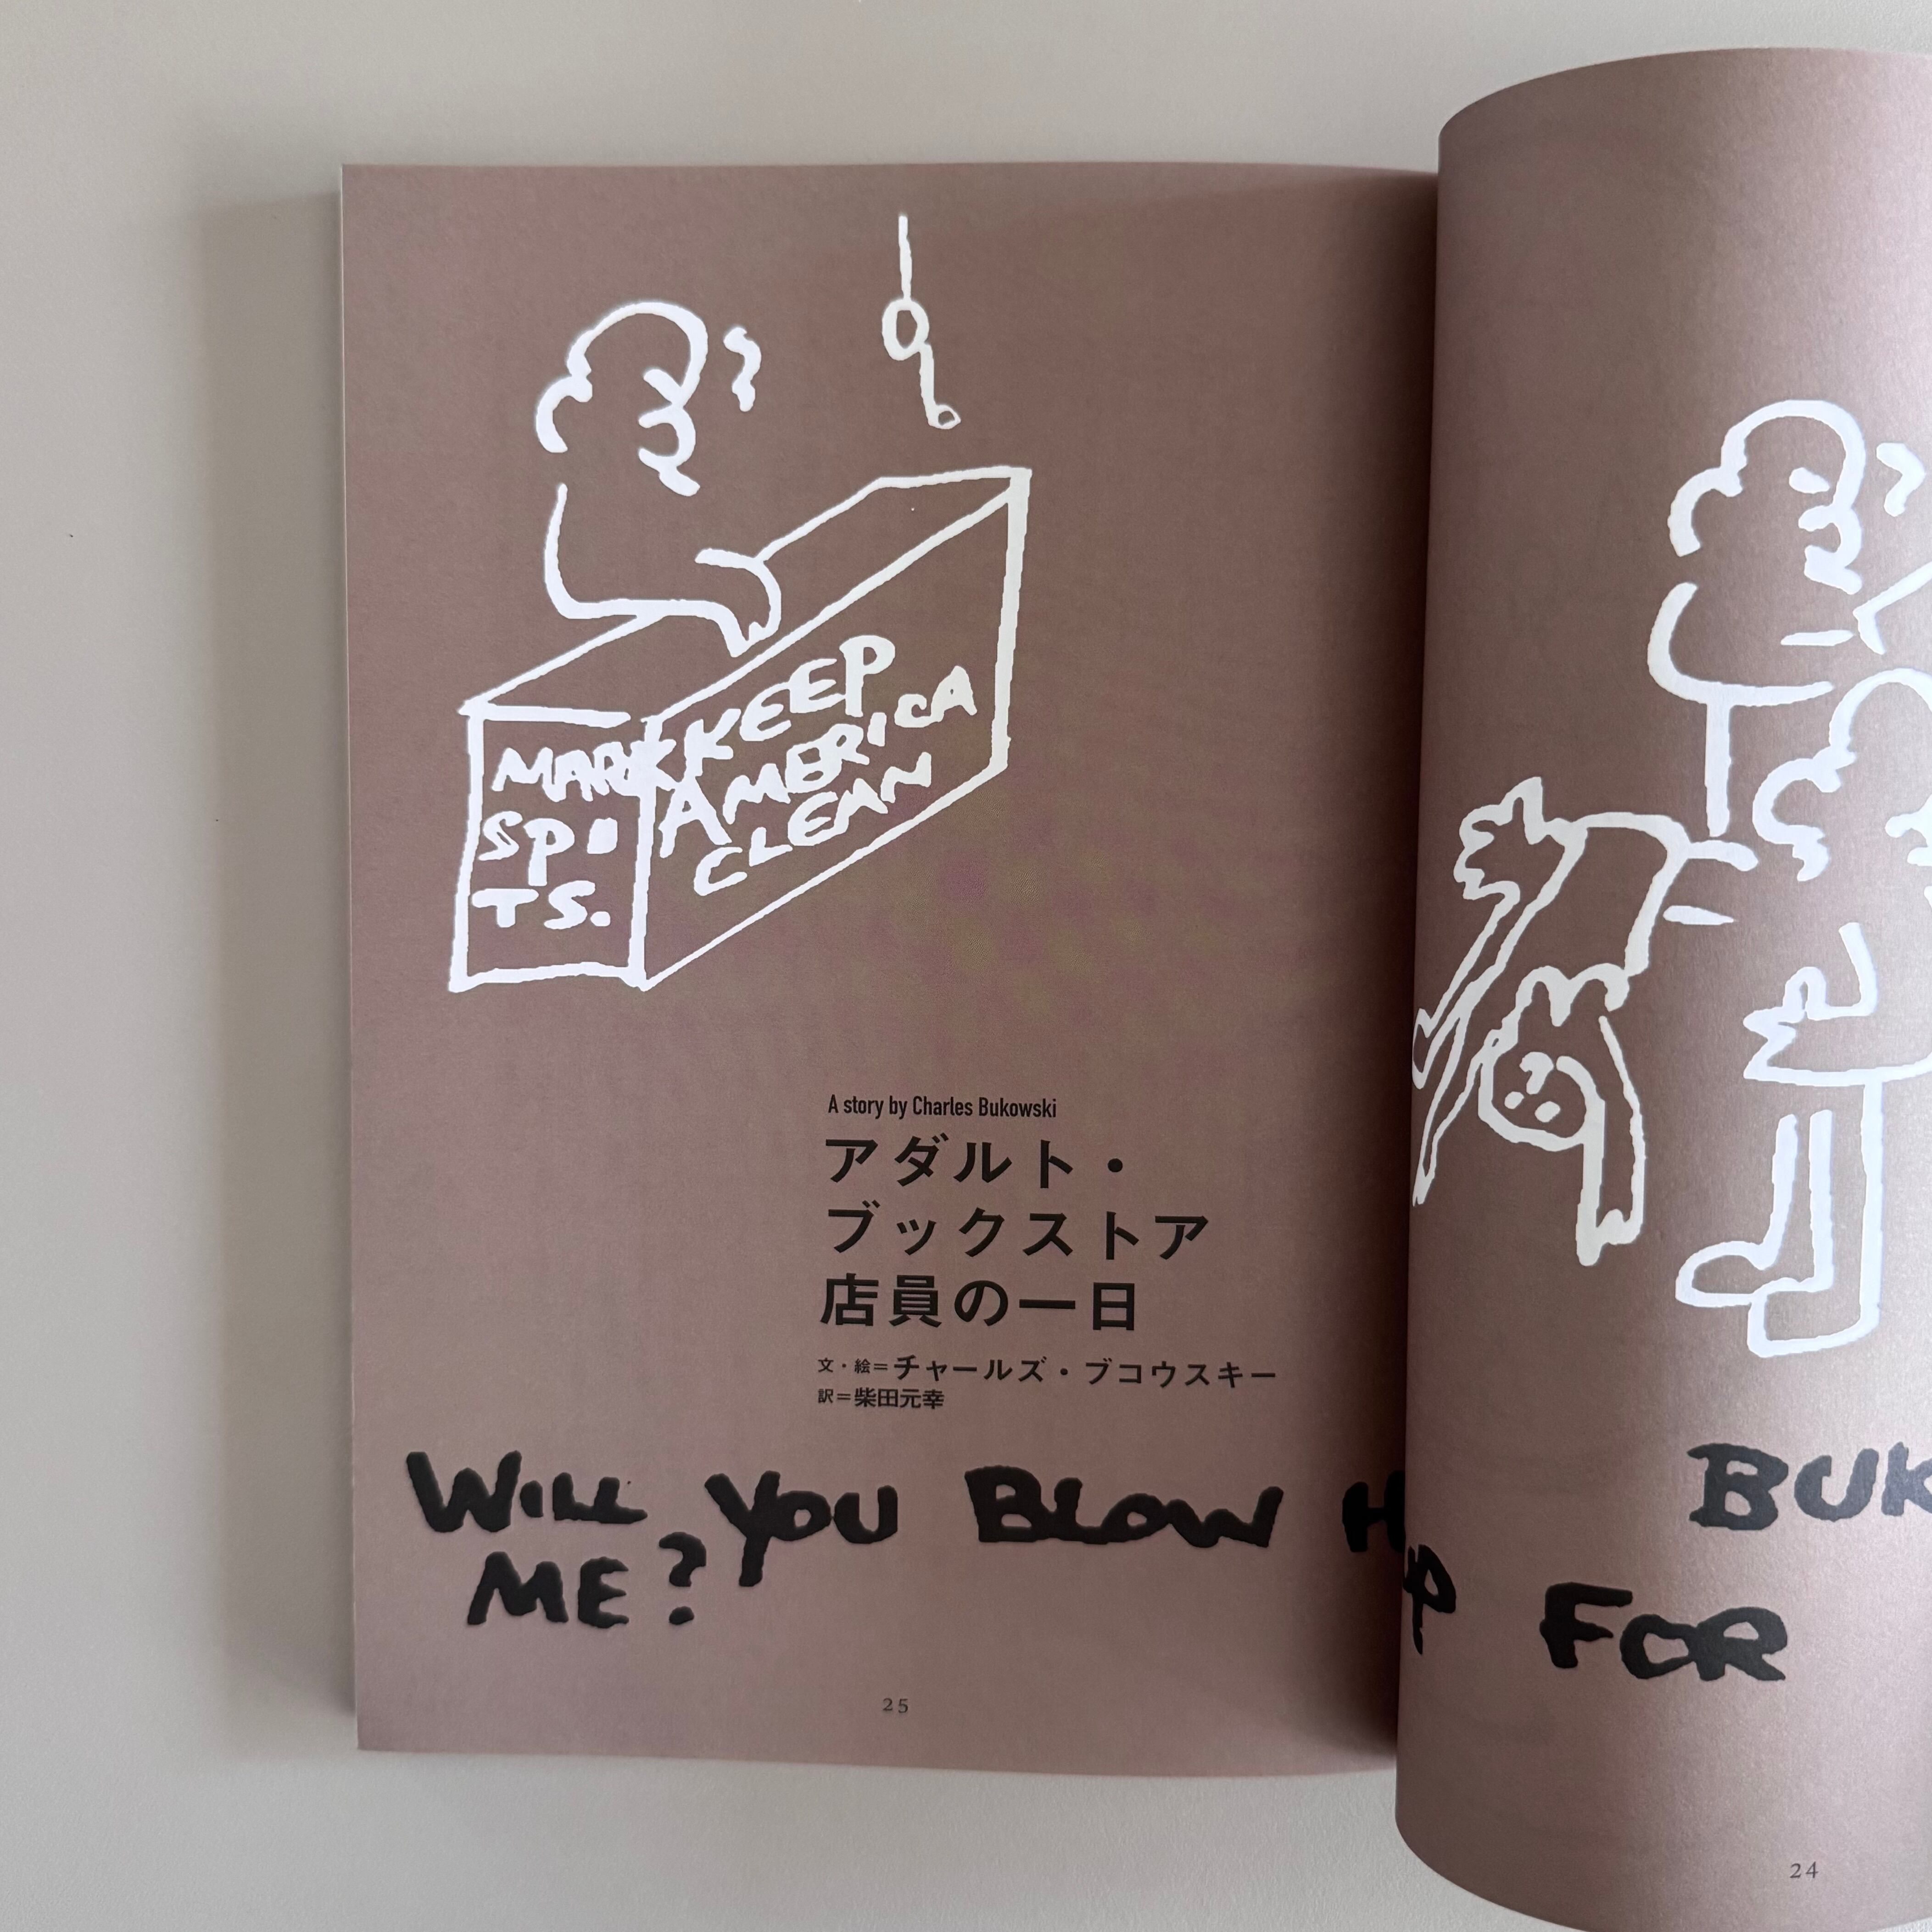 MARK
SPI
TS.
KEEP
AMERICA
CLEAN
A story by Charles Bukowski
アダルト・
ブックストア
店員の一日
文・絵=チャールズ・ブコウスキー
訳=柴田元幸
WILL YOU BLOW
ME?
25
BUK
UP FOR
24